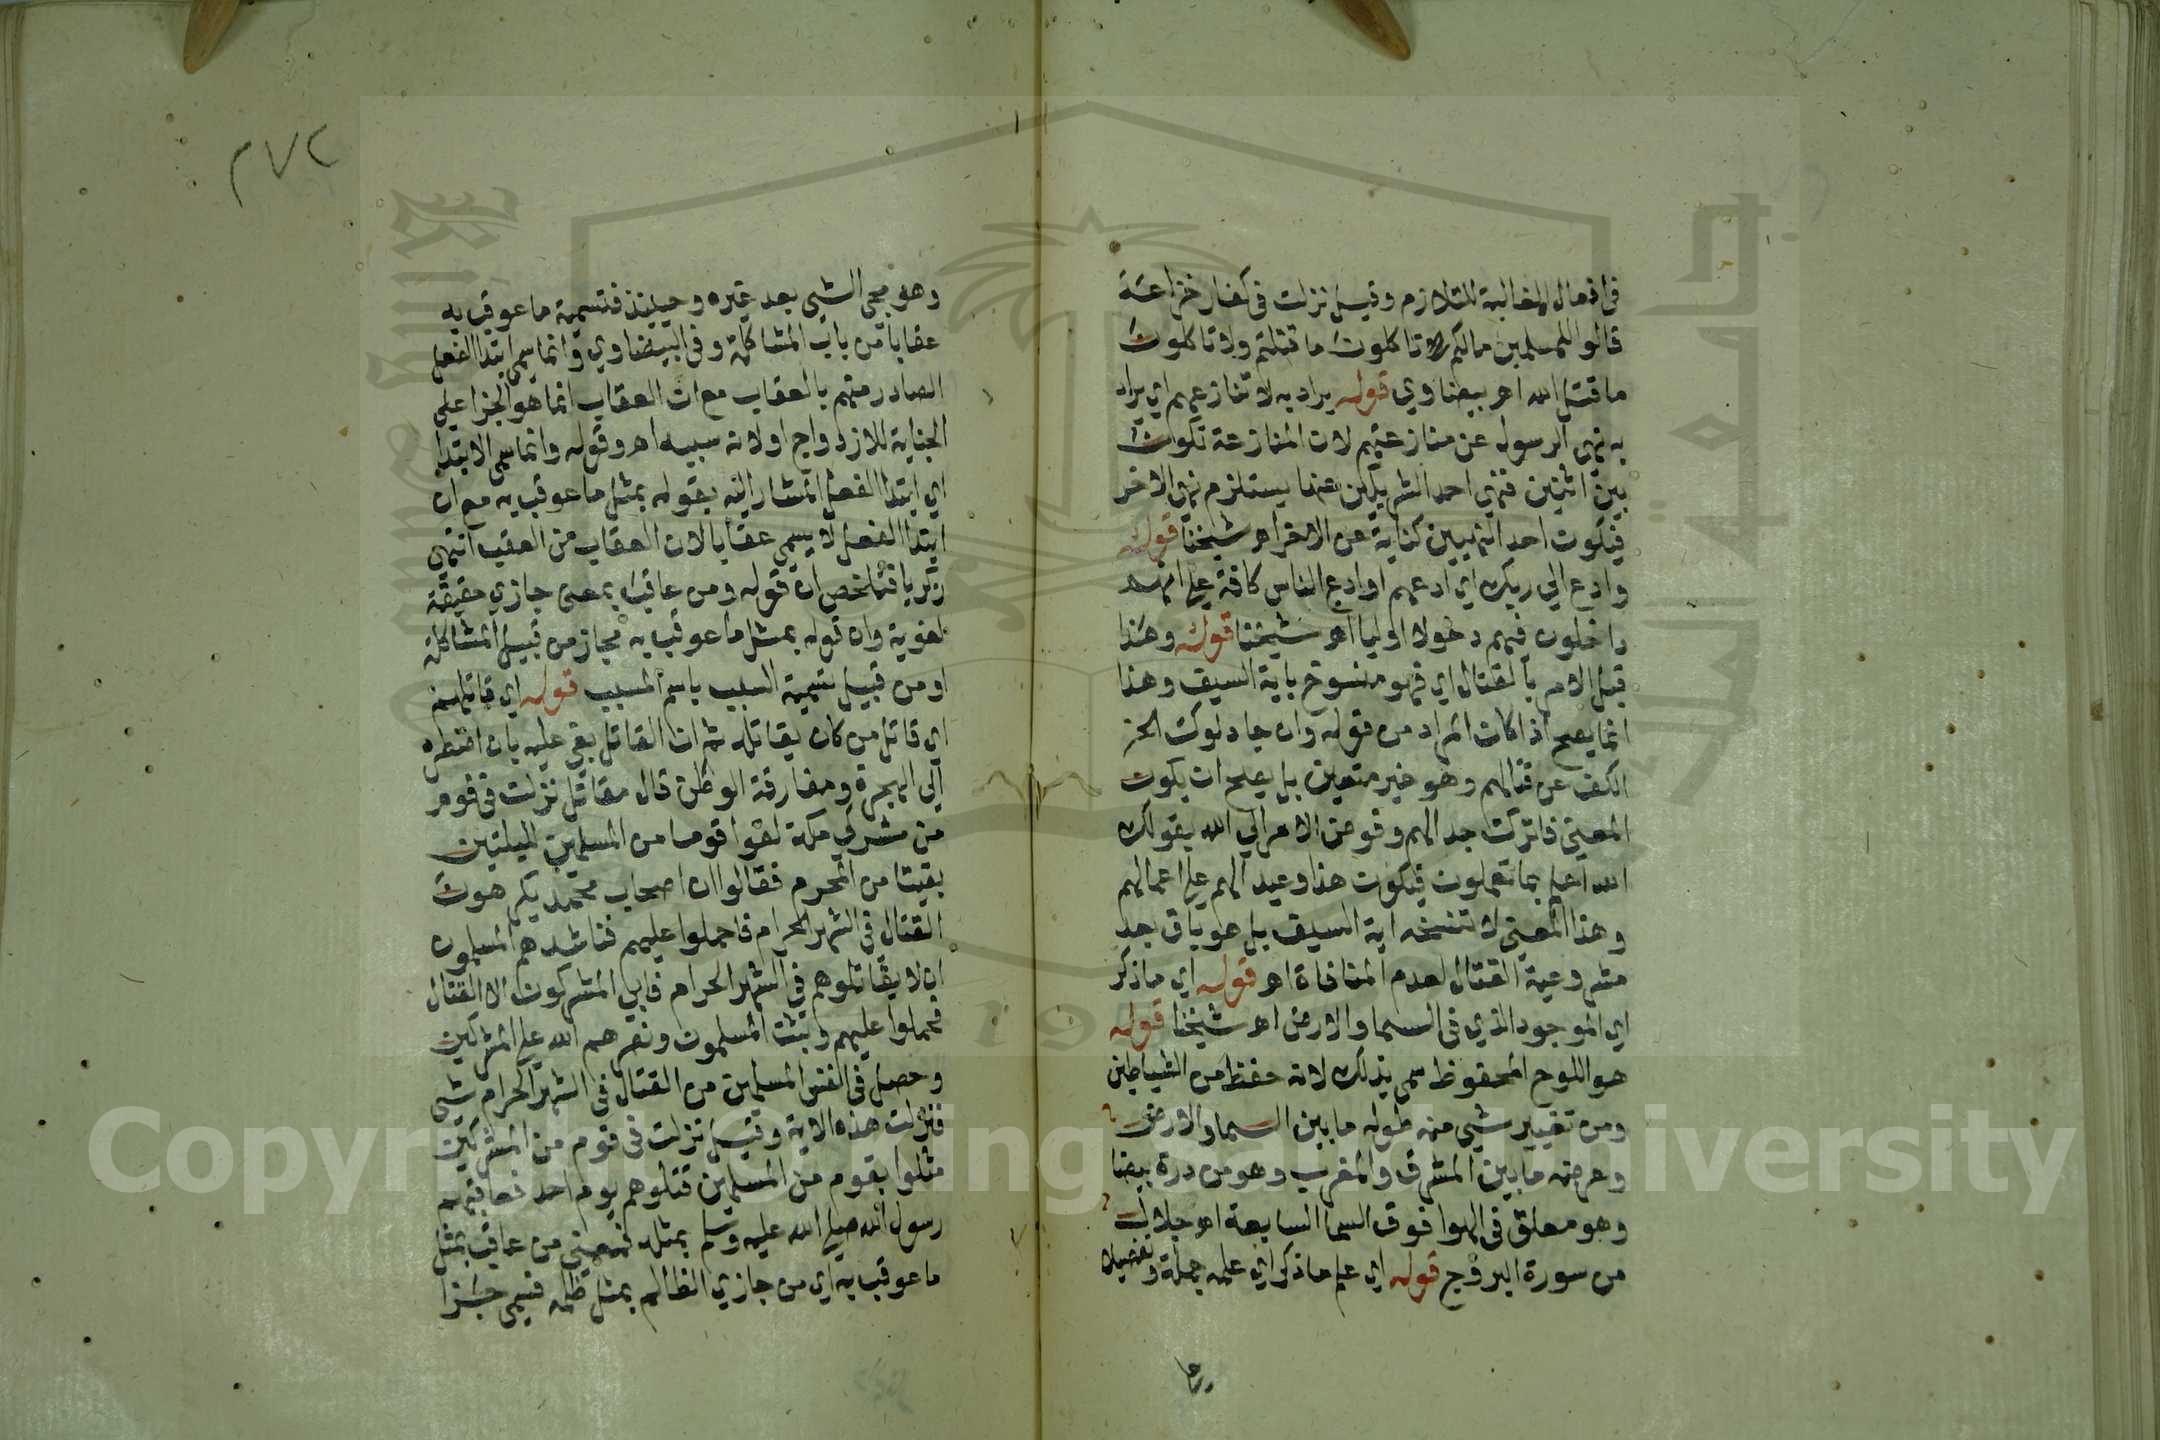 في افعال المغالبة للتلازم وقيل نزلت في كفار خزاعة
قالوا للمسلمين مالكم لا تاكلون ما قتلتم ولا تاكلون
ما قتل الله اهـ بيضاوي قوله يراد به لا تنازعهم اي يراد
به نهي الرسول عن منازعتهم لان المنازعة تكون
بين اثنين فنهي احد الشريكين عنها يستلزم نهي الاخر
فيكون احد النهيين كناية عن الاخر اهـ شيخنا قوله
وادع الي ربك اي ادعهم او ادع الناس كافة علي انهم
داخلون فيهم دخولا اوليا اهـ شيخنا قوله وهذا
قبل الامر بالقتال اي فهو منسوخ باية السيف وهذا
انما يصح اذا كان المراد من قوله وان جادلوك الخ
الكف عن قتالهم وهو غير متعين بل يصح ان يكون
المعني فاترك جدالهم وفوض الامر الي الله بقولك
الله اعلم بما تعملون فيكون هذا وعيد الهم علي اعمالهم
وهذا المعني لا تنسخه اية السيف بل هو باق بعد
مشروعية القتال لعدم المنافاة اهـ قوله اي ما ذكر
اي الموجود الذي في السما والارض اهـ شيخنا قوله
هو اللوح المحفوظ سمي بذلك لانه حفظ من الشياطين
ومن تغيير شي منه طوله ما بين السما والارض
وعرضه ما بين المشرق والمغرب وهو من درة بيضا
وهو معلق في الهوا فوق السما السابعة اهـ جلالين
من سورة البروج قوله اي علم ما ذكر اي علمه جملة وتفصيلا
٢٧٢
وهو مجي الشي بعد غيره وحينئذ فتسمية ما عوقب به
عقابا من باب المشاكلة وفي البيضاوي وانما سمي ابتدا الفعل
الصادر منهم بالعقاب مع ان العقاب انما هو الجزا علي
الجناية للازدواج او لانه سببه اهـ وقوله وانما سمي الابتدا
اي ابتدا الفعل المشار اليه بقوله بمثل ما عوقب به مع ان
ابتدا الفعل لا يسمي عقابا لان العقاب من العقب انتهي
زكريا فتلخص ان قوله ومن عاقب بمعني جازي حقيقة
لغوية وان قوله بمثل ما عوقب به مجاز من قبيل المشاكلة
او من قبيل تسمية السبب باسم المسبب قوله اي قاتلهم
اي قاتل من كان يقاتله ثم ان القاتل بغي عليه بان اضطره
الي الهجرة ومفارقة الوطن قال مقاتل نزلت في قوم
من مشركي مكة لقوا قوما من المسلمين لليلتين
بقيتا من المحرم فقالوا ان اصحاب محمد يكرهون
القتال في الشهر الحرام فاحملوا عليهم فناشدهم المسلمون
ان لا يقاتلوهم في الشهر الحرام فابي المشركون الا القتال
فحملوا عليهم وثبت المسلمون ونصرهم الله علي المشركين
وحصل في انفس المسلمين من القتال في الشهر الحرام شي
فنزلت هذه الاية وقيل نزلت في قوم من المشركين
مثلوا بقوم من المسلمين قتلوهم يوم احد فعاقبهم
رسول الله صلي الله عليه وسلم بمثله فمعني من عاقب بمثل
ما عوقب به اي من جازي الظالم بمثل ظلمه فسمي جزا
Copyright © King Saud University